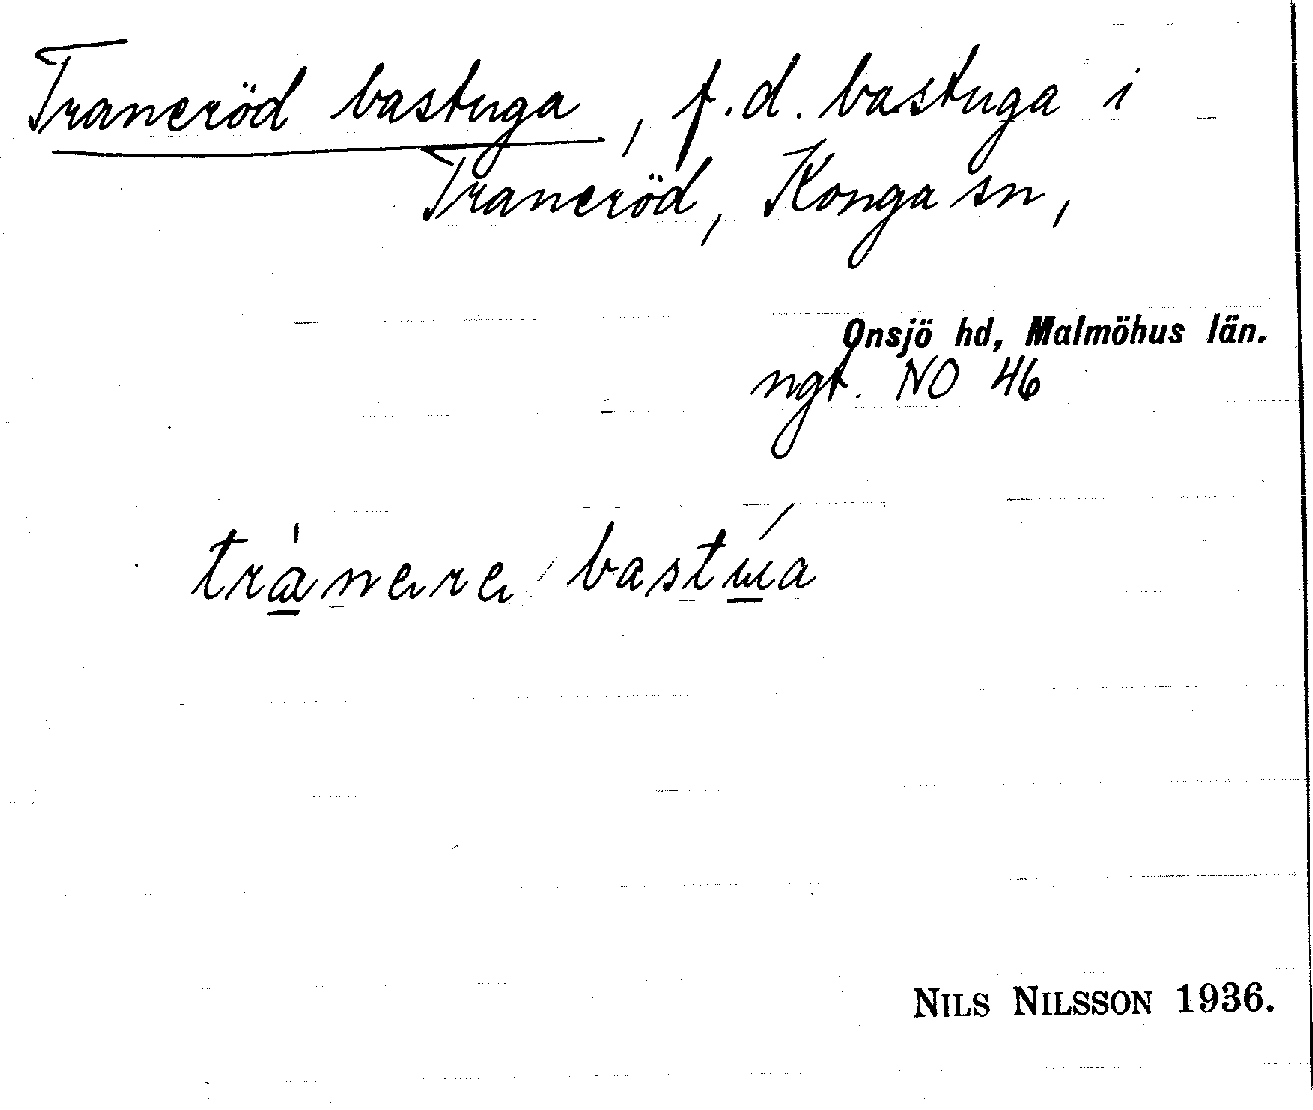 Traneröd bastuga, f.d. bastuga i
Traneröd, Konga sn,
Onsjö hd, Malmöhus län.
ngt. NO 46
tranere bastua
NILS NILSSON 1936.